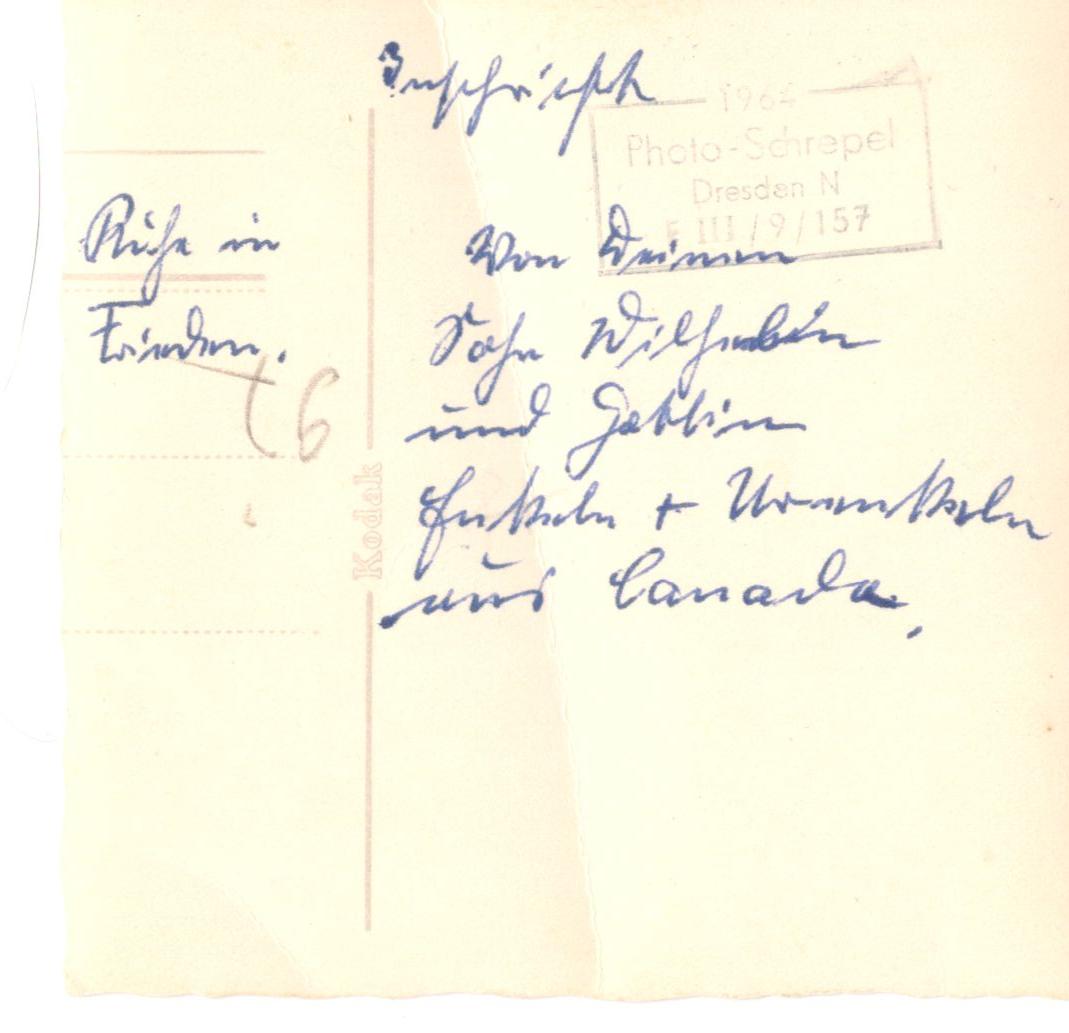 Inschrift
1964
Photo-Schrepel
Dresden N
III/9/157
Ruhe in
Frieden.
Von Deinen
Sohn Wilhelm
und Gattin
Enkeln + Urenkeln
aus Canada.
Kodak